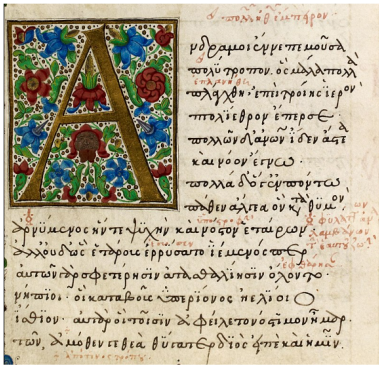 Ἄνδρα μοι ἔννεπε μοῦσα
πολύτροπον. ὃς μάλα πολλὰ
πλάγχθη. ἐπεὶ τροίης ἱερὸν
πτολίεθρον ἔπερσε
πολλῶν δ' ἀνθρώπων ἴδεν ἄστεα
καὶ νόον ἔγνω.
πολλὰ δ' ὅγ' ἐν πόντῳ
πάθεν ἄλγεα ὃν κατὰ θυμόν
ἀρνύμενος ἥν τε ψυχὴν καὶ νόστον ἑταίρων
ἀλλ' οὐδ' ὣς ἑτάρους ἐρρύσατο ἱέμενός περ
αὐτῶν γὰρ σφετέρῃσιν ἀτασθαλίῃσιν ὄλοντο.
νήπιοι. οἳ κατὰ βοῦς ὑπερίονος ἠελίοιο
ἤσθιον. αὐτὰρ ὁ τοῖσιν ἀφείλετο νόστιμον ἦμαρ
τῶν ἁμόθεν γε θεὰ θύγατερ διὸς εἰπὲ καὶ ἡμῖν.